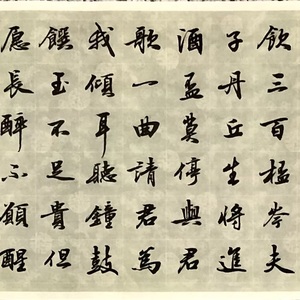 飲三百桮岑夫
子丹丘生將進
酒盃莫停與君
歌一曲請君為
我傾耳聽鐘鼓
饌玉不足貴但
愿長醉不願醒